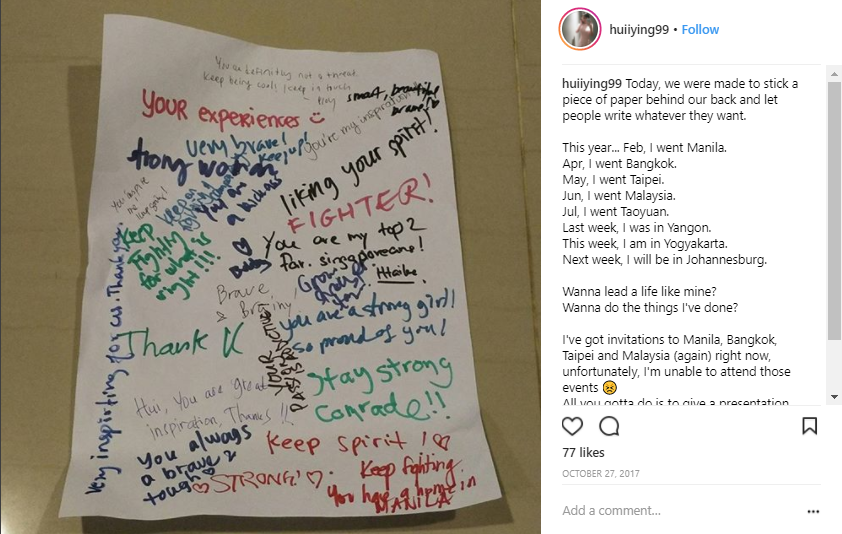 You are definitely not a threat.
Keep being cool, keep in touch
smart, beautiful
brave!
YOUR experiences
you're my inspiration!
very brave!
keep up!
strong woman
liking your spirit!
You are
a kickass
FIGHTER!
keep
fighting
for what is
right!!!
You are my top 2
fav. singaporeans!
Brave
& Brainy!
you are a strong girl!
so proud of you!
Thank U
YOUR
Stay strong
comrade!!
Hui, You are great
inspiration, Thanks!!
Very inspirting for us. Thank you.
you always
a brave &
tough
keep spirit!
STRONG!
Keep fighting.
You have a home in
MANILA
huiiying99 • Follow
huiiying99 Today, we were made to stick a
piece of paper behind our back and let
people write whatever they want.
This year... Feb, I went Manila.
Apr, I went Bangkok.
May, I went Taipei.
Jun, I went Malaysia.
Jul, I went Taoyuan.
Last week, I was in Yangon.
This week, I am in Yogyakarta.
Next week, I will be in Johannesburg.
Wanna lead a life like mine?
Wanna do the things I've done?
I've got invitations to Manila, Bangkok,
Taipei and Malaysia (again) right now,
unfortunately, I'm unable to attend those
events 😣
All you gotta do is to give a presentation
77 likes
OCTOBER 27, 2017
Add a comment...